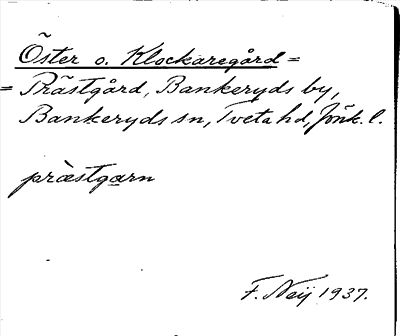 Öster o. Klockaregård =
= Prästgård, Bankeryds by,
Bankeryds sn, Tveta hd, Jönk. l.
præstgarn
F. Neij 1937.